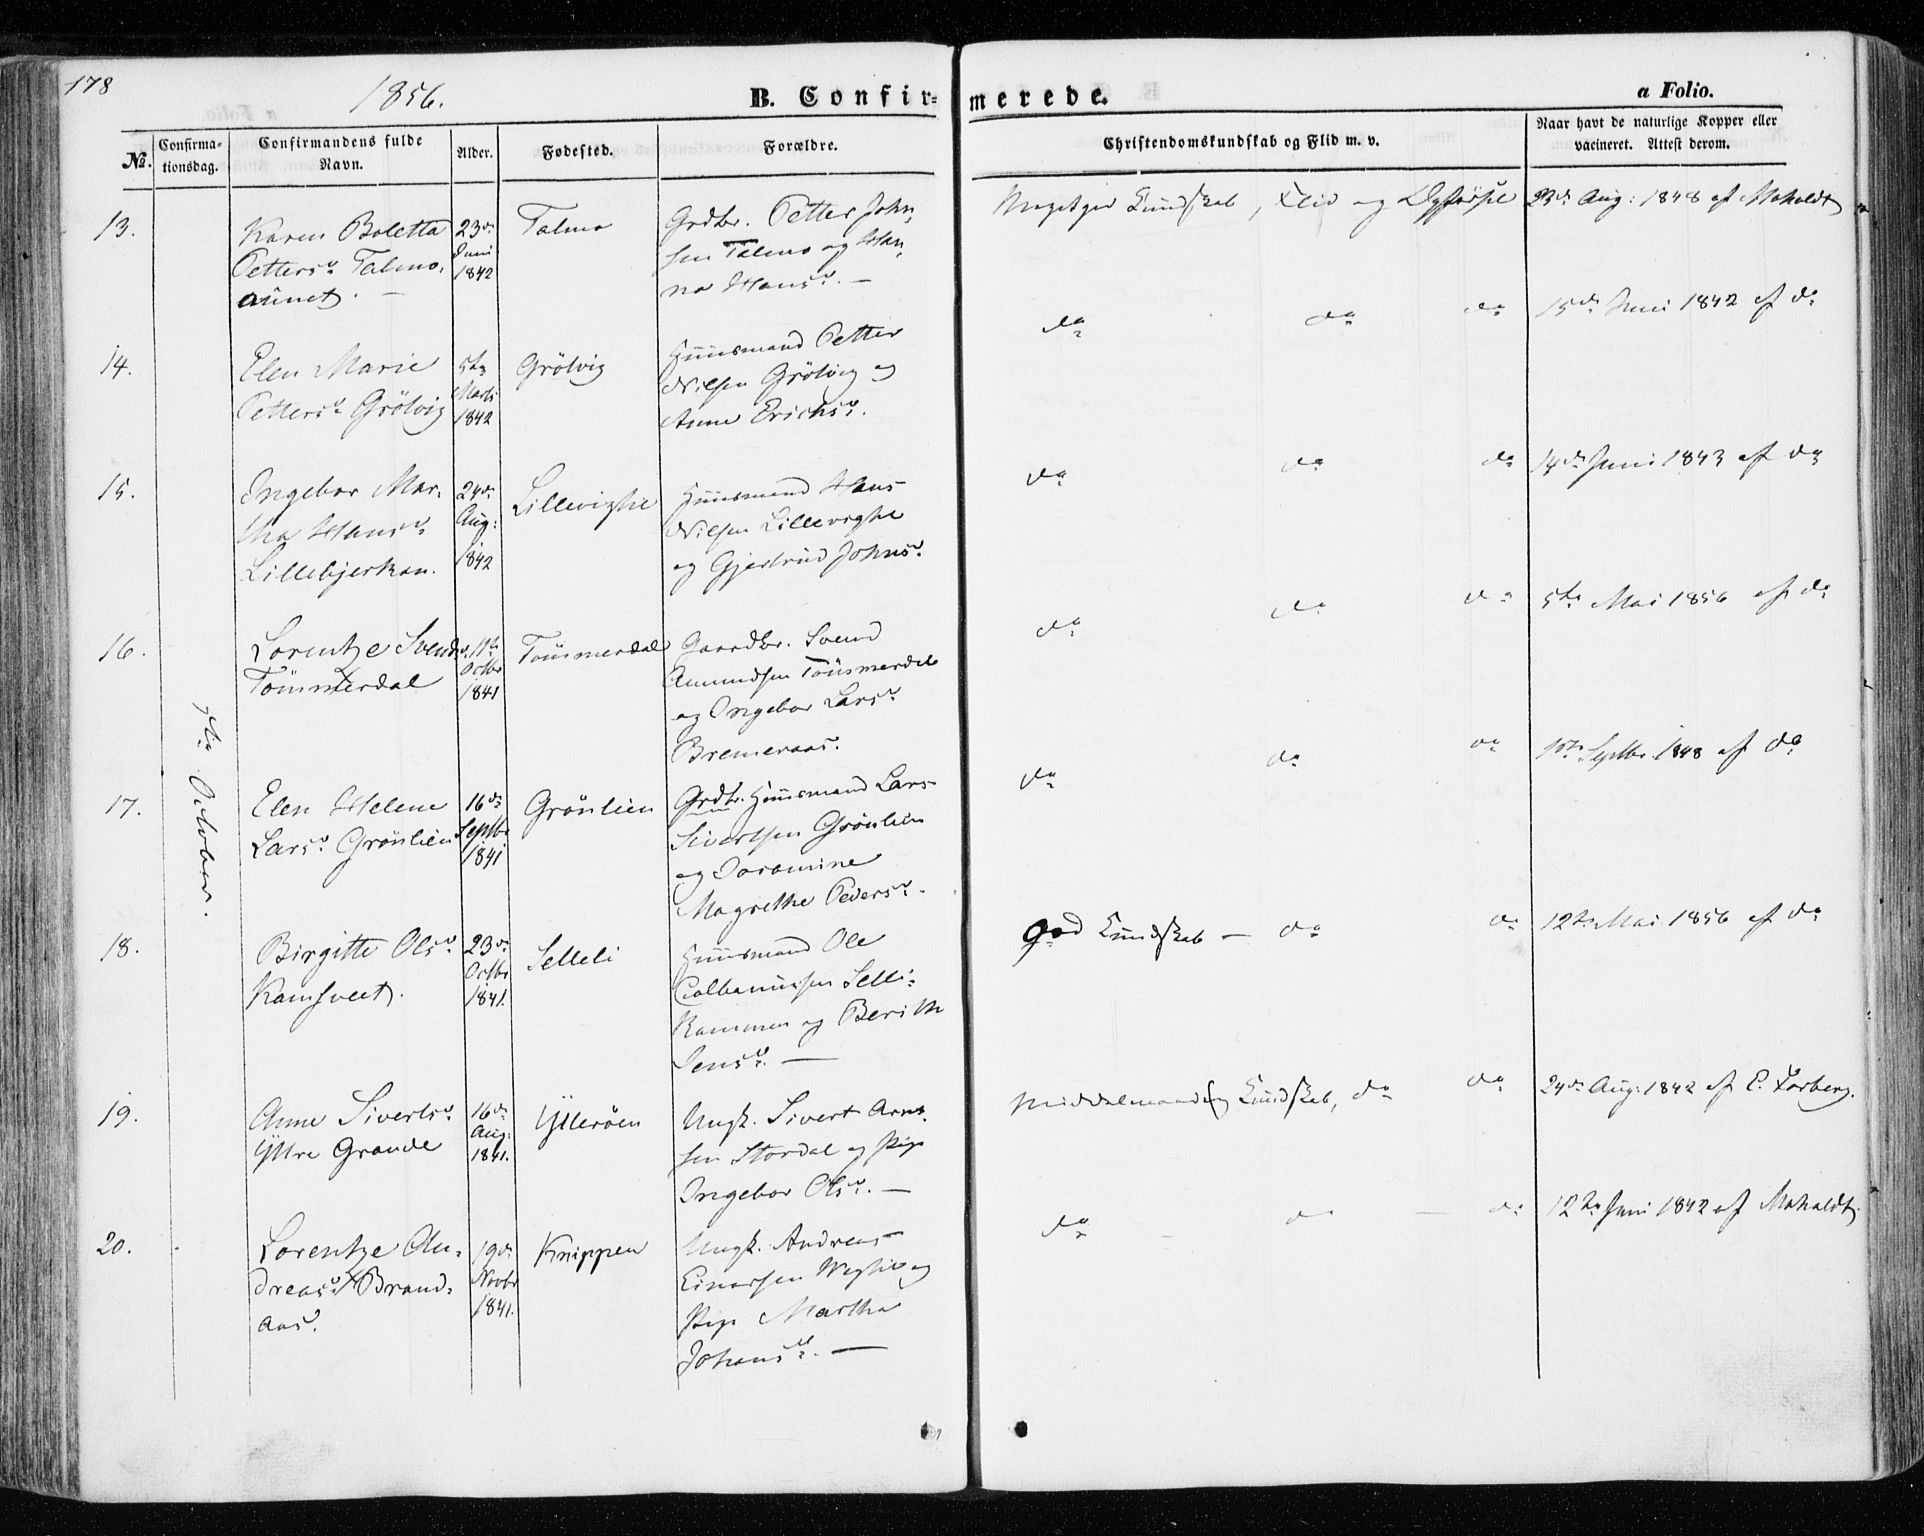 178
1856.
B. Confir=
merede.
a Folio.
No.
Confirma-
tionsdag.
Confirmandens fulde
Navn.
Alder.
Fødested.
Forældre.
Christendomskundskab og Flid m. v.
Naar havt de naturlige Kopper eller
vacineret. Attest derom.
5te October.
13.
Karen Boletta
Petters: Talmo,
aunet. —
23de
Juni
1842
Talmo
Grdbr. Petter John,
sen Talmo og Han,
na Hans: —
Megetgod Kundskab, Flid og Opførsel
23de Aug: 1848 af Moholdt
14.
Elen Marie
Petters: Grötvig
5te
Marts
1842
Grötvig
Huusmand Petter
Nilsen Grötvig og
Anne Erichs:
do do do
15de Juni 1842 af do
15.
Ingebor Mar,
tha Hans:
Lillebjerkan.
24de
Aug:
1842
Lillevighe
Huusmand Hans
Nilsen Lillevighe
og Gjertrud Johns:
do do do
14de Juni 1843 af do
16.
Lorentze Svends:
Tömmerdal
11te
Octbr
1841
Tömmerdal
Gaardbr. Svend
Amundsen Tömmerdal
og Ingebor Lars:
Bremeraas.
do do do
5te Mai 1856 af do
17.
Elen Helene
Lars: Grönlien
16de
Septbr
1841
Grönlien
Grdbr. Huusmand Lars
Sivertsen Grönlien
og Doromine
Magrethe Peders: -
do do do
Septbr. 1848 af do
18.
Birgitte Ols:
Kamsveet.
23de
Octbr
1841.
Selleli
Huusmand Ole
Selli=
Kammen og Berith
Jens: —
God Kundskab — do do
12te Mai 1856 af do
19.
Anne Siverts:
Yttre Grande
16de
Aug:
1841.
Ytterøen
Ungk. Sivert Arnt,
sen Stordal og Pige
Ingebor Ols: —
Middelmaadig Kundskab, do do
24de Aug: 1842 af C. Farberg.
20.
Lorentze An,
dreas: Brand,
aas.
19de
Novbr
1841.
Knippen
Ungk. Andreas
Einarsen og
Pige Martha
Johans: —
do do — do
12te Juni 1842 af Moholdt.